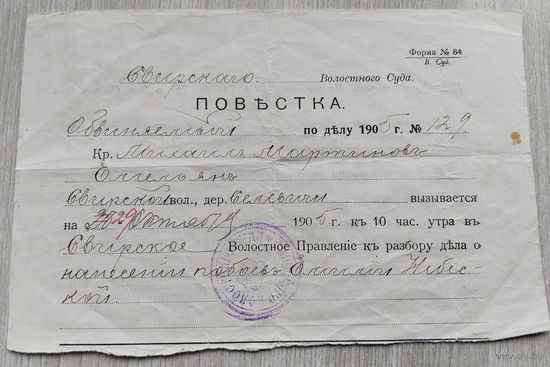 Форма № 84.
В. Суд.
Свирскаго Волостного Суда.
ПОВѢСТКА.
Обвиняемый по дѣлу 1905 г. № 129
Кр. Михаилъ Мартиновъ
Емельян
Свирской вол., дер. вызывается
на 29 Октября 1905 г. къ 10 час. утра въ
Свирское Волостное Правленіе къ разбору дѣла о
нанесеніи побоевъ Эмиліи Небес-
кой.